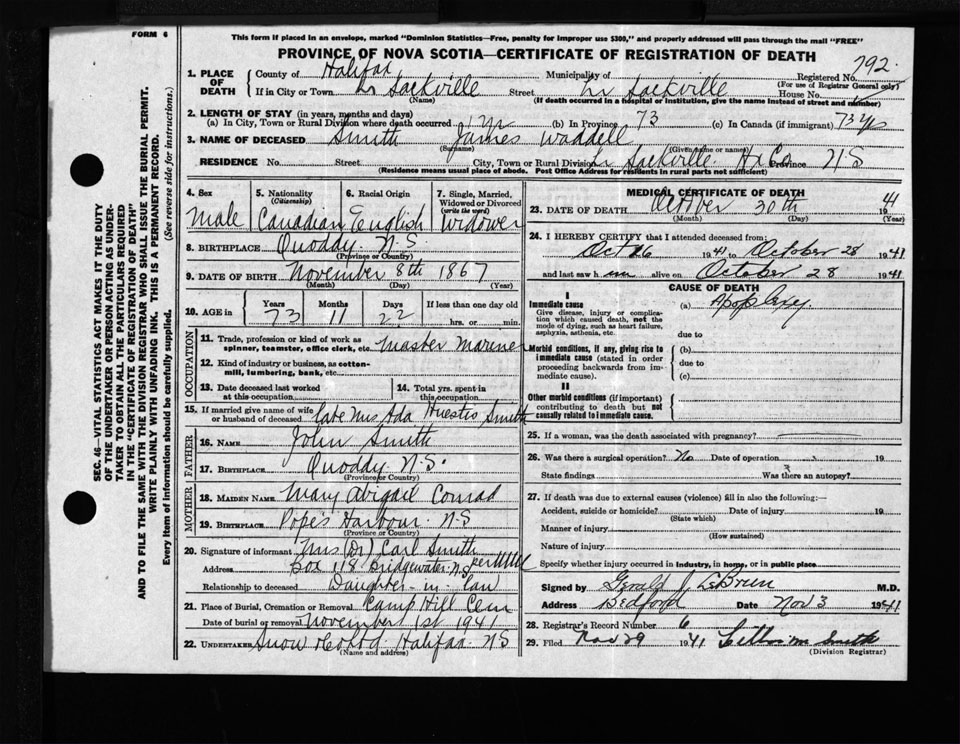 FORM 6
This form if placed in an envelope, marked "Dominion Statistics—Free, penalty for improper use $300," and properly addressed will pass through the mail "FREE"
PROVINCE OF NOVA SCOTIA—CERTIFICATE OF REGISTRATION OF DEATH
792.
1. PLACE OF DEATH
County of Halifax Municipality of Registered No.
(For use of Registrar General only)
If in City or Town Lr Sackville Street Lr Sackville House No.
(Name) (If death occurred in a hospital or institution, give the name instead of street and number)
2. LENGTH OF STAY (in years, months and days)
(a) In City, Town or Rural Division where death occurred 1 yr (b) In Province 73 (c) In Canada (if immigrant) 73 yrs
3. NAME OF DECEASED Smith James Waddell
(Surname) (Given name or names)
RESIDENCE No. Street City, Town or Rural Division Lr Sackville Hx Co Province N S
(Residence means usual place of abode. Post Office Address for residents in rural parts not sufficient)
4. Sex 5. Nationality (Citizenship) 6. Racial Origin 7. Single, Married, Widowed or Divorced (write the word)
Male Canadian English Widower
8. BIRTHPLACE Quoddy N.S.
(Province or Country)
9. DATE OF BIRTH November 8th 1867
(Month) (Day) (Year)
10. AGE in Years Months Days If less than one day old
73 11 22 hrs. or min.
OCCUPATION
11. Trade, profession or kind of work as spinner, teamster, office clerk, etc. Master Mariner
12. Kind of industry or business, as cotton-mill, lumbering, bank, etc.
13. Date deceased last worked at this occupation
14. Total yrs. spent in this occupation
15. If married give name of wife or husband of deceased late Mrs Ada Huestis Smith
FATHER
16. NAME John Smith
17. BIRTHPLACE Quoddy N.S.
(Province or Country)
MOTHER
18. MAIDEN NAME Mary Abigael Conrad
19. BIRTHPLACE Pope's Harbour N-S
(Province or Country)
20. Signature of informant Mrs (Dr) Carl Smith
Address Box 118 Bridgewater N.S.
Relationship to deceased Daughter-in-law
21. Place of Burial, Cremation or Removal Camp Hill Cem
Date of burial or removal November 1st 1941
22. UNDERTAKER Snow & Co Ltd Halifax NS
(Name and address)
MEDICAL CERTIFICATE OF DEATH
23. DATE OF DEATH October 30th 1941
(Month) (Day) (Year)
24. I HEREBY CERTIFY that I attended deceased from:
Oct 26 1941 to October 28 1941
and last saw h im alive on October 28 1941
CAUSE OF DEATH
I
Immediate cause (a) Apoplexy
Give disease, injury or complication which caused death, not the mode of dying, such as heart failure, asphyxia, asthenia, etc.
due to
Morbid conditions, if any, giving rise to immediate cause (stated in order proceeding backwards from immediate cause).
(b)
due to
(c)
II
Other morbid conditions (if important) contributing to death but not causally related to immediate cause.
25. If a woman, was the death associated with pregnancy?
26. Was there a surgical operation? No Date of operation 19
State findings Was there an autopsy?
27. If death was due to external causes (violence) fill in also the following:—
Accident, suicide or homicide? Date of injury 19
(State which)
Manner of injury
(How sustained)
Nature of injury
Specify whether injury occurred in industry, in home, or in public place
Signed by Gerald J. LeBrun M.D.
Address Bedford Date Nov 3 1941
28. Registrar's Record Number 6
29. Filed Nov 29 1941 Smith
(Division Registrar)
SEC. 46—VITAL STATISTICS ACT MAKES IT THE DUTY
OF THE UNDERTAKER OR PERSON ACTING AS UNDER-
TAKER TO OBTAIN ALL THE PARTICULARS REQUIRED
IN THE "CERTIFICATE OF REGISTRATION OF DEATH"
AND TO FILE THE SAME WITH THE DIVISION REGISTRAR WHO SHALL ISSUE THE BURIAL PERMIT.
WRITE PLAINLY WITH UNFADING INK. THIS IS A PERMANENT RECORD.
Every item of information should be carefully supplied. (See reverse side for instructions.)